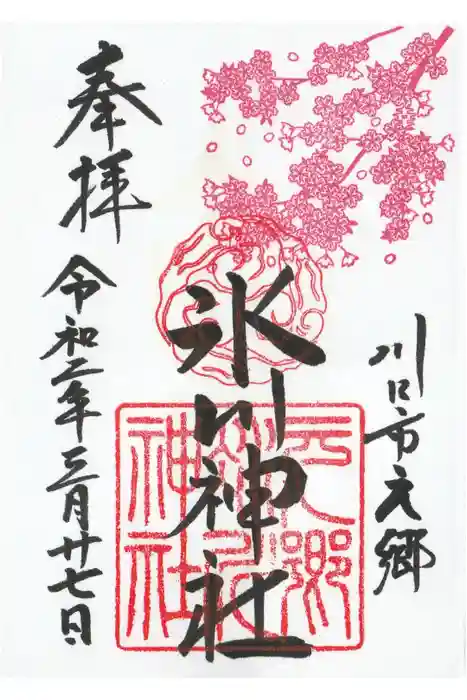 川口市元郷
氷川神社
奉拝
令和二年三月廿七日
元郷氷川神社